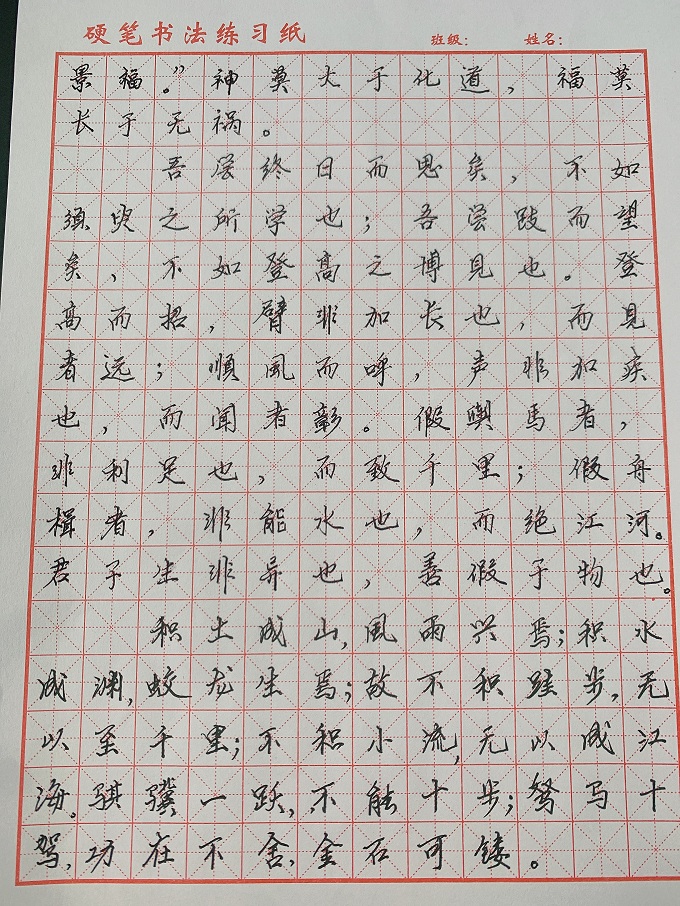 硬笔书法练习纸 班级： 姓名：
景福。”神莫大于化道，福莫
长于无祸。
吾尝终日而思矣，不如
须臾之所学也；吾尝跂而望
矣，不如登高之博见也。登
高而招，臂非加长也，而见
者远；顺風而呼，声非加疾
也，而闻者彰。假舆馬者，
非利足也，而致千里；假舟
楫者，非能水也，而绝江河。
君子生非异也，善假于物也。
积土成山，風雨兴焉；积水
成渊，蛟龙生焉；故不积跬步，无
以至千里；不积小流，无以成江
海。骐骥一跃，不能十步；驽马十
驾，功在不舍，金石可镂。